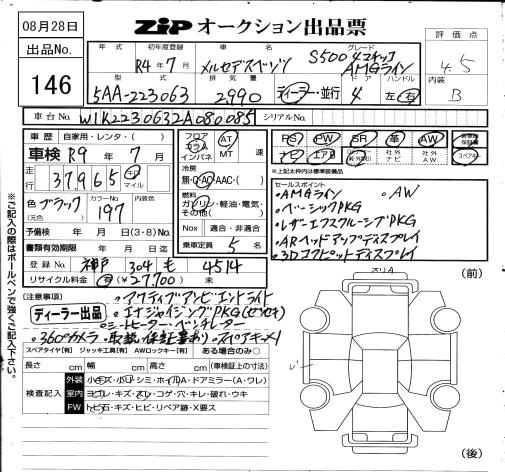 08月28日
出品No.
146
ZiP オークション出品票
評価点
4.5
内装
B
年式 初年度登録 車名 グレード
R4年7月 メルセデスベンツ S500 4マチック
AMGライン
型式 排気量 ドア ハンドル
5AA-223063 2,990 ディーラー・並行 4 左・右
車台No. W1K2230632A080085 シリアルNo.
車歴 自家用・レンタ・( )
車検 R9年7月
走行 37,965 キロ マイル
色 ブラック (元色) カラーNo. 197 内装色
予備検 年 月 日(3・8)No.
書類有効期限 年 月 日迄
登録No. 神戸 304 も 4514
リサイクル料金 有(¥27,700) 未
フロア コラム インパネ AT MT 速
冷房
無・C・AC・AAC・( )
燃料
ガソリン・軽油・電気・その他( )
Nox 適合・非適合
乗車定員 5 名
PS PW SR 革 AW 新車時保証書
ナビ エアB 社外ナビ 社外AW スペアキー
※上記太枠は標準装備品
セールスポイント
・AMGライン ・AW
・ベーシックPKG
・レザーエクスクルーシブPKG
・ARヘッドアップディスプレイ
・3Dコクピットディスプレイ
(注意事項)
ディーラー出品
・アクティブアンビエントライト
・エナジャイジングPKG
・シートヒーター・ベンチレーター
・360°カメラ ・取説・保証書あり・スペアキー×1
スペアタイヤ[有] ジャッキ工具[有] AWロックキー[有] ある場合のみ○
長さ cm 幅 cm 高さ cm (車検証上の寸法)
検査記入
外装 小キズ・小凹・シミ・ホイルA・ドアミラー(A・ワレ)
室内 ヨゴレ・キズ・スレ・コゲ・穴・キレ・破れ・ウキ
FW トビ石・キズ・ヒビ・リペア跡・X要ス
スリA
(前)
(後)
※ご記入の際はボールペンで強くご記入下さい。